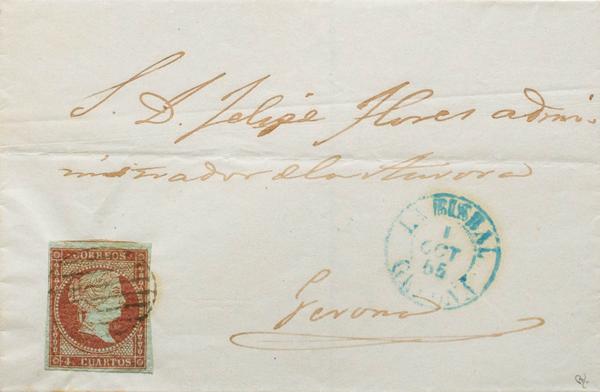 S. D. Felipe Flores admi-
nistrador de la Aurora
LA BISBAL
1
OCT
55
GERONA
CORREOS
4 CUARTOS
Gerona